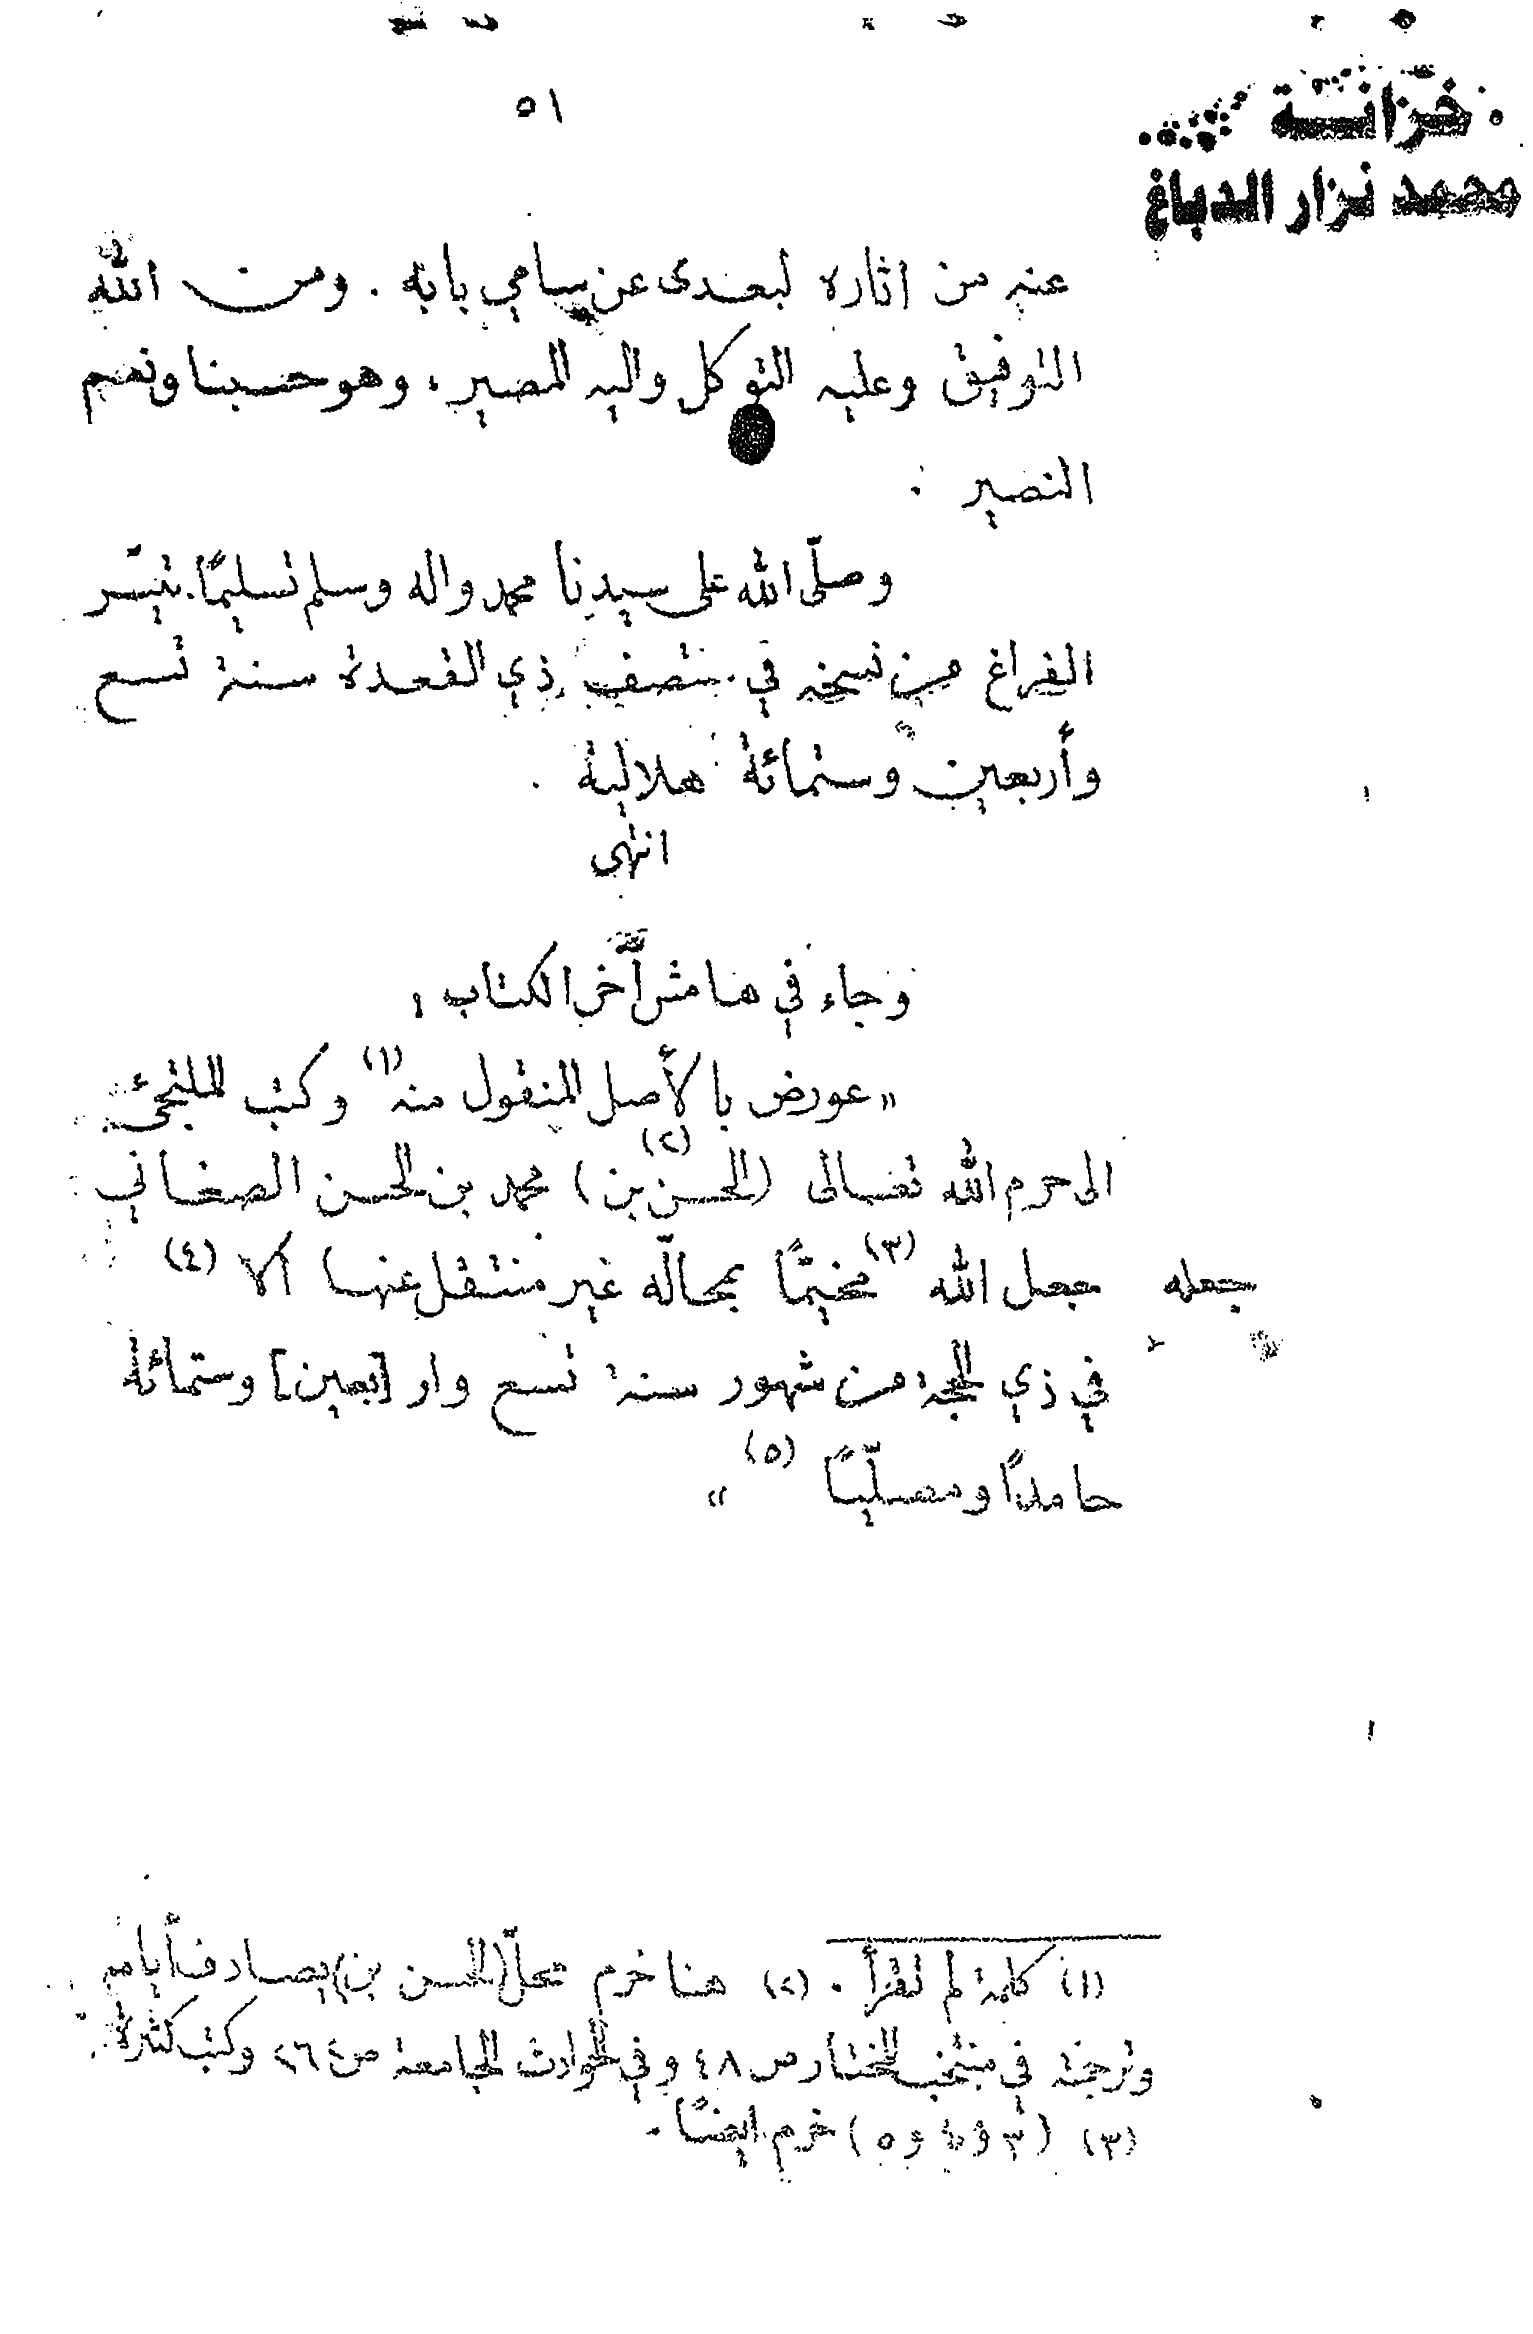 ٥١
خزانة
محمد نزار الدباغ
عنه من اثاره لبعدى عن سامي بابه . ومن الله
التوفيق وعليه التوكل واليه المصير ، وهو حسبنا ونعم
النصير .
وصلّى الله على سيدنا محمد واله وسلم تسليمًا . تيسّر
الفراغ من نسخه في منتصف ذي القعدة سنة تسع
وأربعين وستمائة هلالية .
انتهى
وجاء في هامش آخر الكتاب :
« عورض بالأصل المنقول منه (١) وكتب الملتجئ
الى حرم الله تعالى (الحسن بن) (٢) محمد بن الحسن الصغاني
جعله جعل الله (٣) مخيمًا بمحالّه غير منتقل عنها الا (٤)
في ذي الحجة من شهور سنة تسع وار [بعين] وستمائة
حامدًا ومصلّيًا (٥) »
(١) كلمة لم تقرأ . (٢) هنا خرم محلّ (الحسن بن) يصادف أيامهم
وترجمته في منتخب المختار ص ٤٨ وفي الحوادث الجامعة ص ٢٦٤ وكتب كثيرة .
(٣) (٣ و ٤ و ٥) خرم ايضًا .